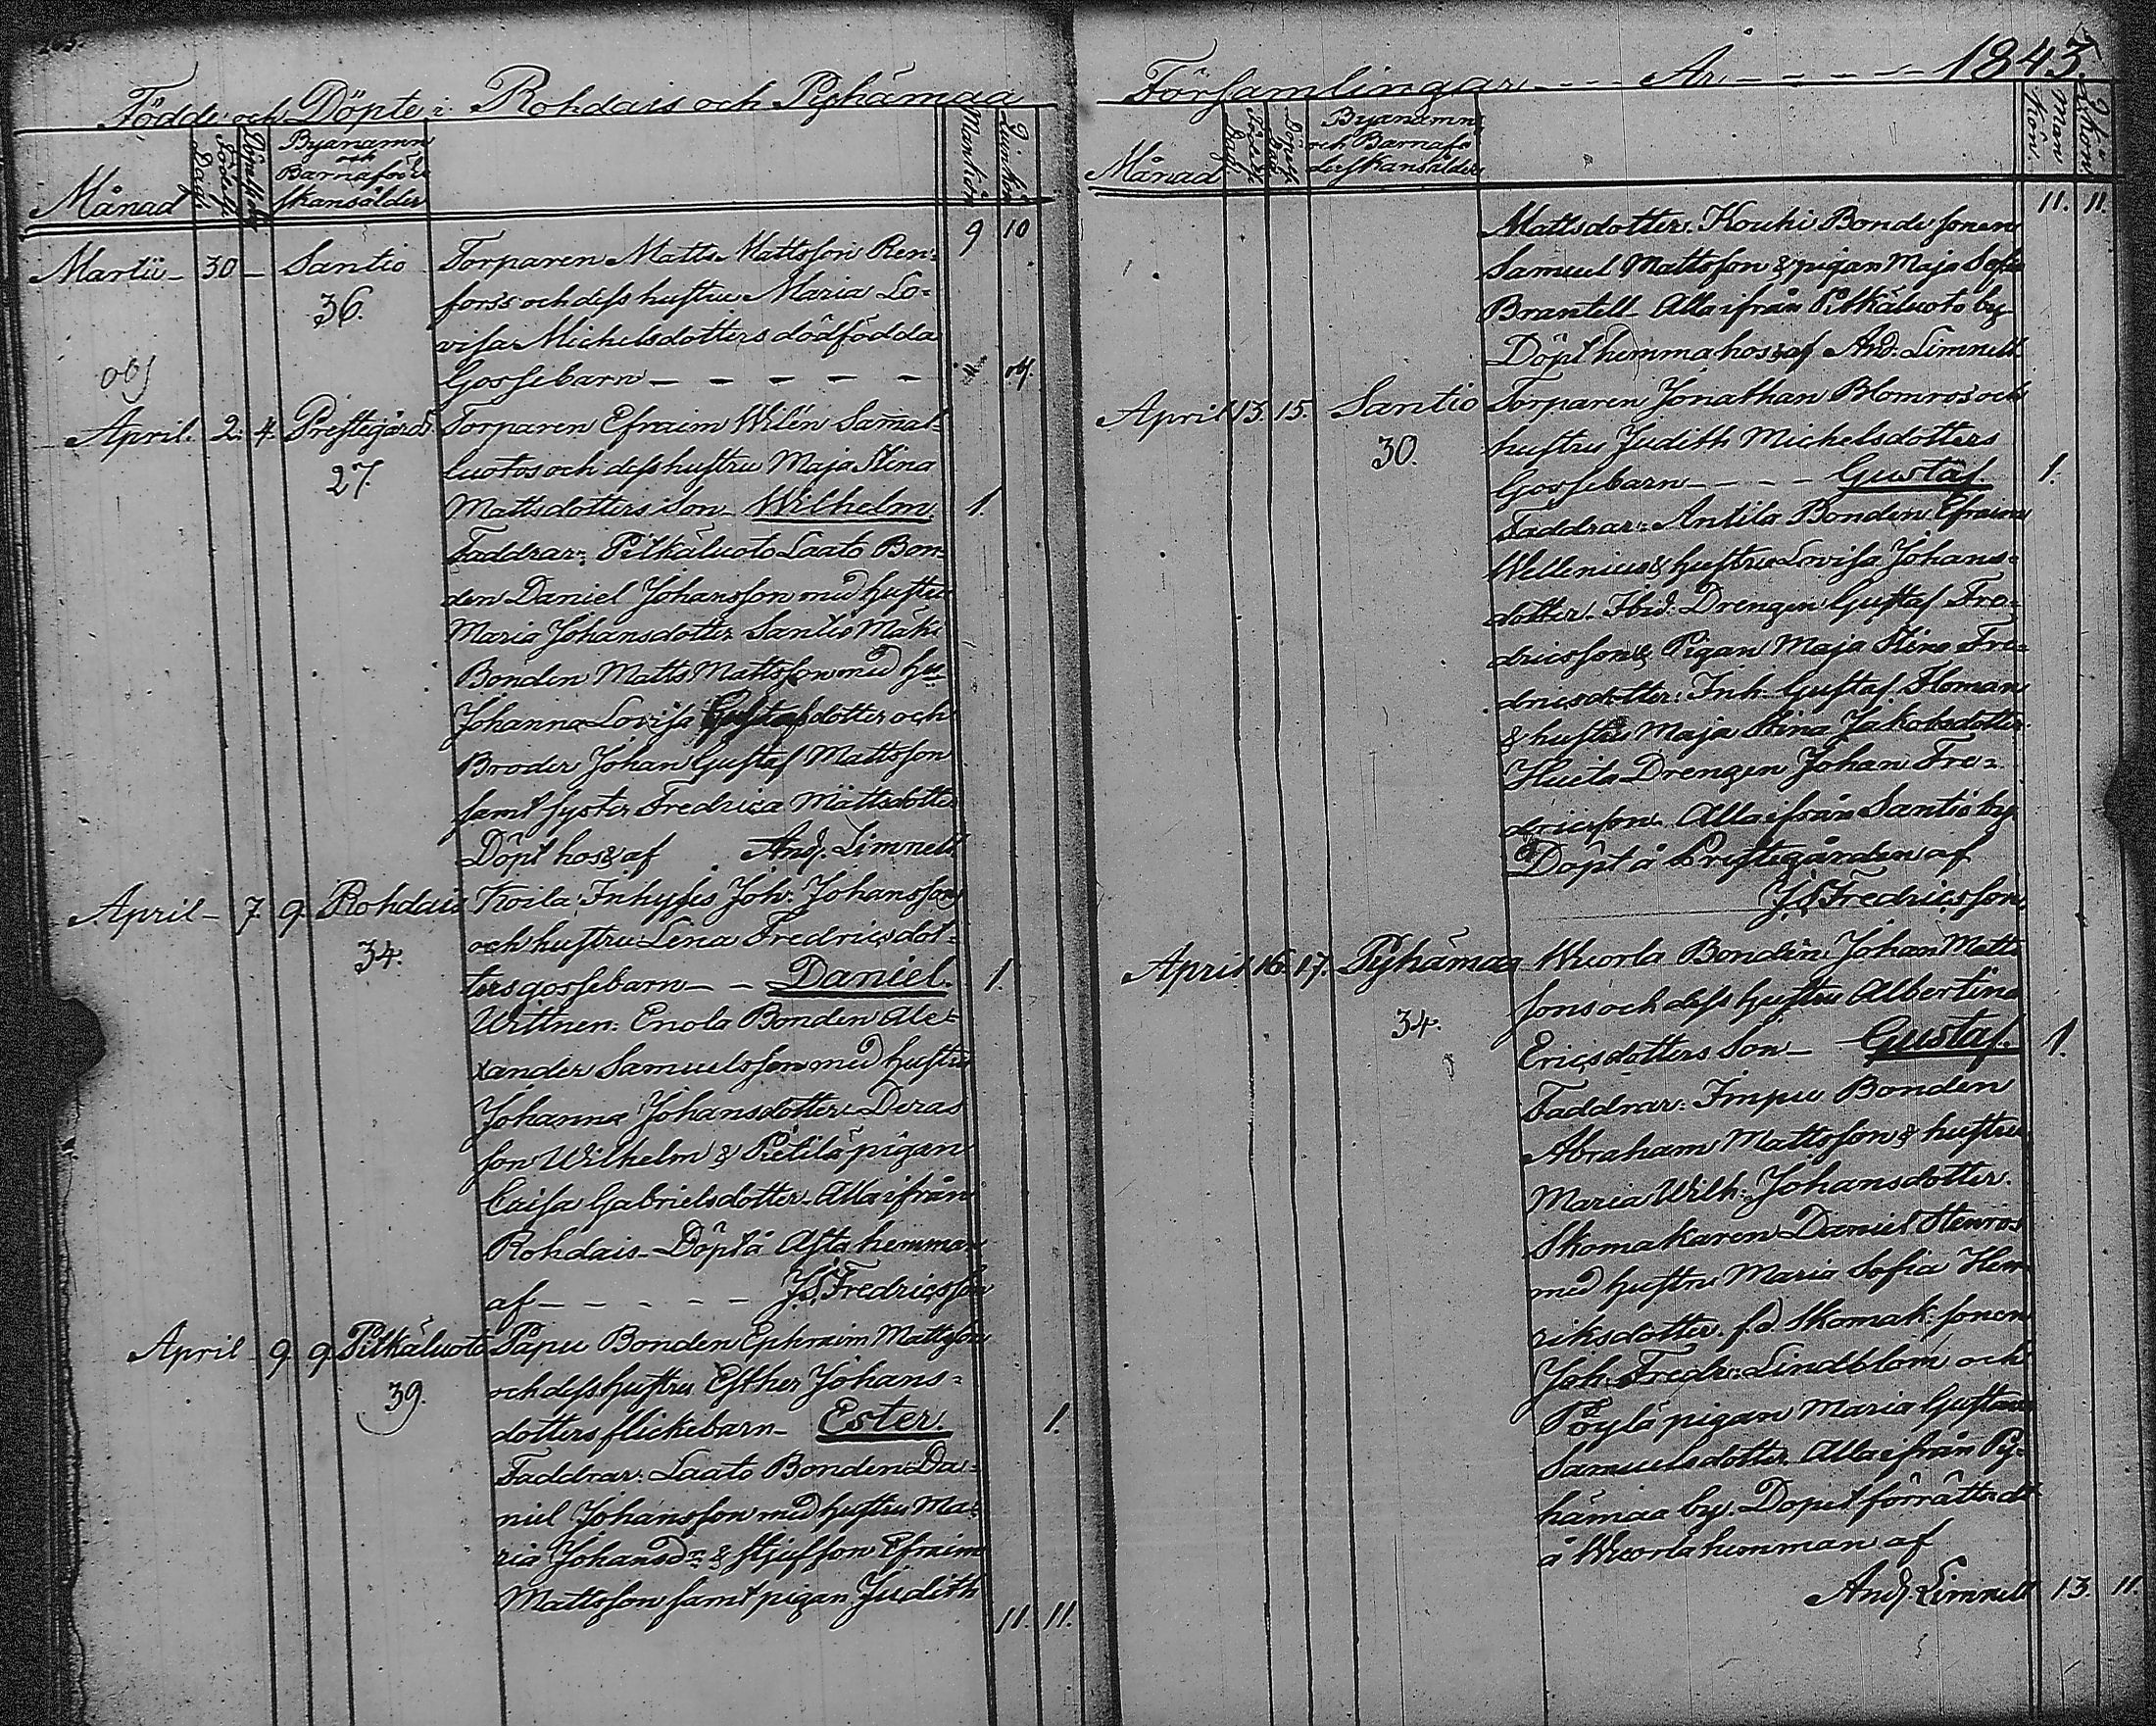 Födde och Döpte i Rohdais och Pyhämaa
Månad
Födelse Dag
Döpelse Dag
Byanamn
och
Barnaföd
skansålder
Mankön
Qvinkön
9 10
Martii - 30 - Santio Torparen Matts Mattsson Ren-
36. fors's och dess hustru Maria Lo-
visa Michelsdotters dödfödda
obs Gossebarn - - - - - -
April. 2. 4. Prestegård Torparen Efraim Wilén Samal-
27. luotos och dess hustru Maja Stina
Mattsdotters Son - Wilhelm 1
Faddrar: Pitkäluoto Laato Bon-
den Daniel Johansson med hustru
Maria Johansdotter Santio Mäki
Bonden Matts Mattsson med Hu-
Johanna Lovisa Gustafsdotter och
Broder Johan Gustaf Mattsson
samt syster Fredrica Mattsdotter
Döpt hos & af And. Limnell
April - 7. 9. Rohdais Koila Inhyses Joh: Johansson
34. och hustru Lena Fredricsdot-
ters gossebarn - - Daniel. 1.
Wittnen: Enola Bonden Ale-
xander Samuelsson med hustru
Johanna Johansdotter Deras
son Wilhelm & Pietilä pigan
Caisa Gabrielsdotter. Alla ifrån
Rohdais - Döpt å Ajta hemman
af - - - - - - J.S. Fredricsson
April 9. 9. Pitkäluoto Papu Bonden Ephraim Mattsson
39. och dess hustru Esther Johans-
dotters flickebarn - Ester. 1.
Faddrar: Laato Bonden Da-
niel Johansson med hustru Ma-
ria Johansdr: & Stjufson Efraim
Mattsson samt pigan Judith
11. 11.
Församlingar - - - - År - - - - - 1843.
Månad
Födelse Dag
Döpelse Dag
Byanamn
och Barnafö
derskans ålder
Man kön.
11. 11.
Mattsdotter. Kouhi Bonde sonen
Samuel Mattsson & pigan Maja Sofia
Brantell - Alla ifrån Pitkäluoto by
Döpt hemma hos & af And. Limnell
April 13. 15. Santio Torparen Jonathan Blomros och
30. hustru Judith Michelsdotters
Gossebarn - - - - Gustaf. 1.
Faddrar: Antila Bonden Efraim
Wellenius & hustru Lovisa Johans-
dotter. Ibid: Drengen Gustaf Fre-
dricsson & Pigan Maja Stina Fre-
dricsdotter: Inh. Gustaf Floman
& hustru Maja Stina Jakobsdotter
Huits Drengen Johan Fre-
dricsson. Alla ifrån Santio by
Döpt å Prestegården af
J.S. Fredricsson
April 16. 17. Pyhämaa Wuorla Bonden Johan Matts
34. sons och dess hustru Albertina
Ericsdotters Son - Gustaf. 1.
Faddrar: Impu Bonden
Abraham Mattsson & hustru
Maria Wilh: Johansdotter.
Skomakaren Daniel Stenros
med hustru Maria Sofia Hen-
riksdotter. f.d. Skomak: sonen
Joh: Fredr: Lindblom och
Pöylä pigan Maria Gustava
Samuelsdotter. Alla ifrån Py-
hämaa by. Dopet förrättadt
å Wuorla hemman af
And. Limnell 13. 11.